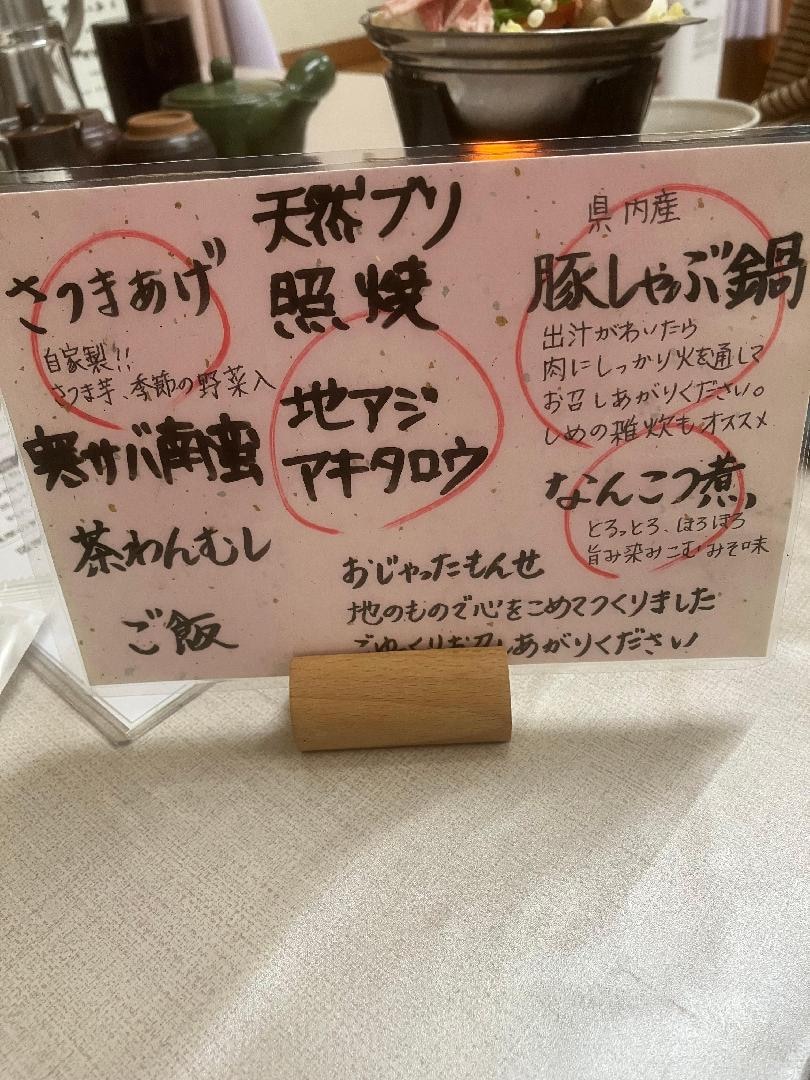 天然ブリ
照焼
さつまあげ
自家製!!
さつま芋、季節の野菜入
寒サバ南蛮
茶わんむし
ご飯
地アジ
アキタロウ
県内産
豚しゃぶ鍋
出汁がわいたら
肉にしっかり火を通して
お召しあがりください。
しめの雑炊もオススメ
なんこつ煮
とろっとろ、ほろほろ
旨み染みこむみそ味
おじゃったもんせ
地のもので心をこめてつくりました
ごゆっくりお召しあがりください